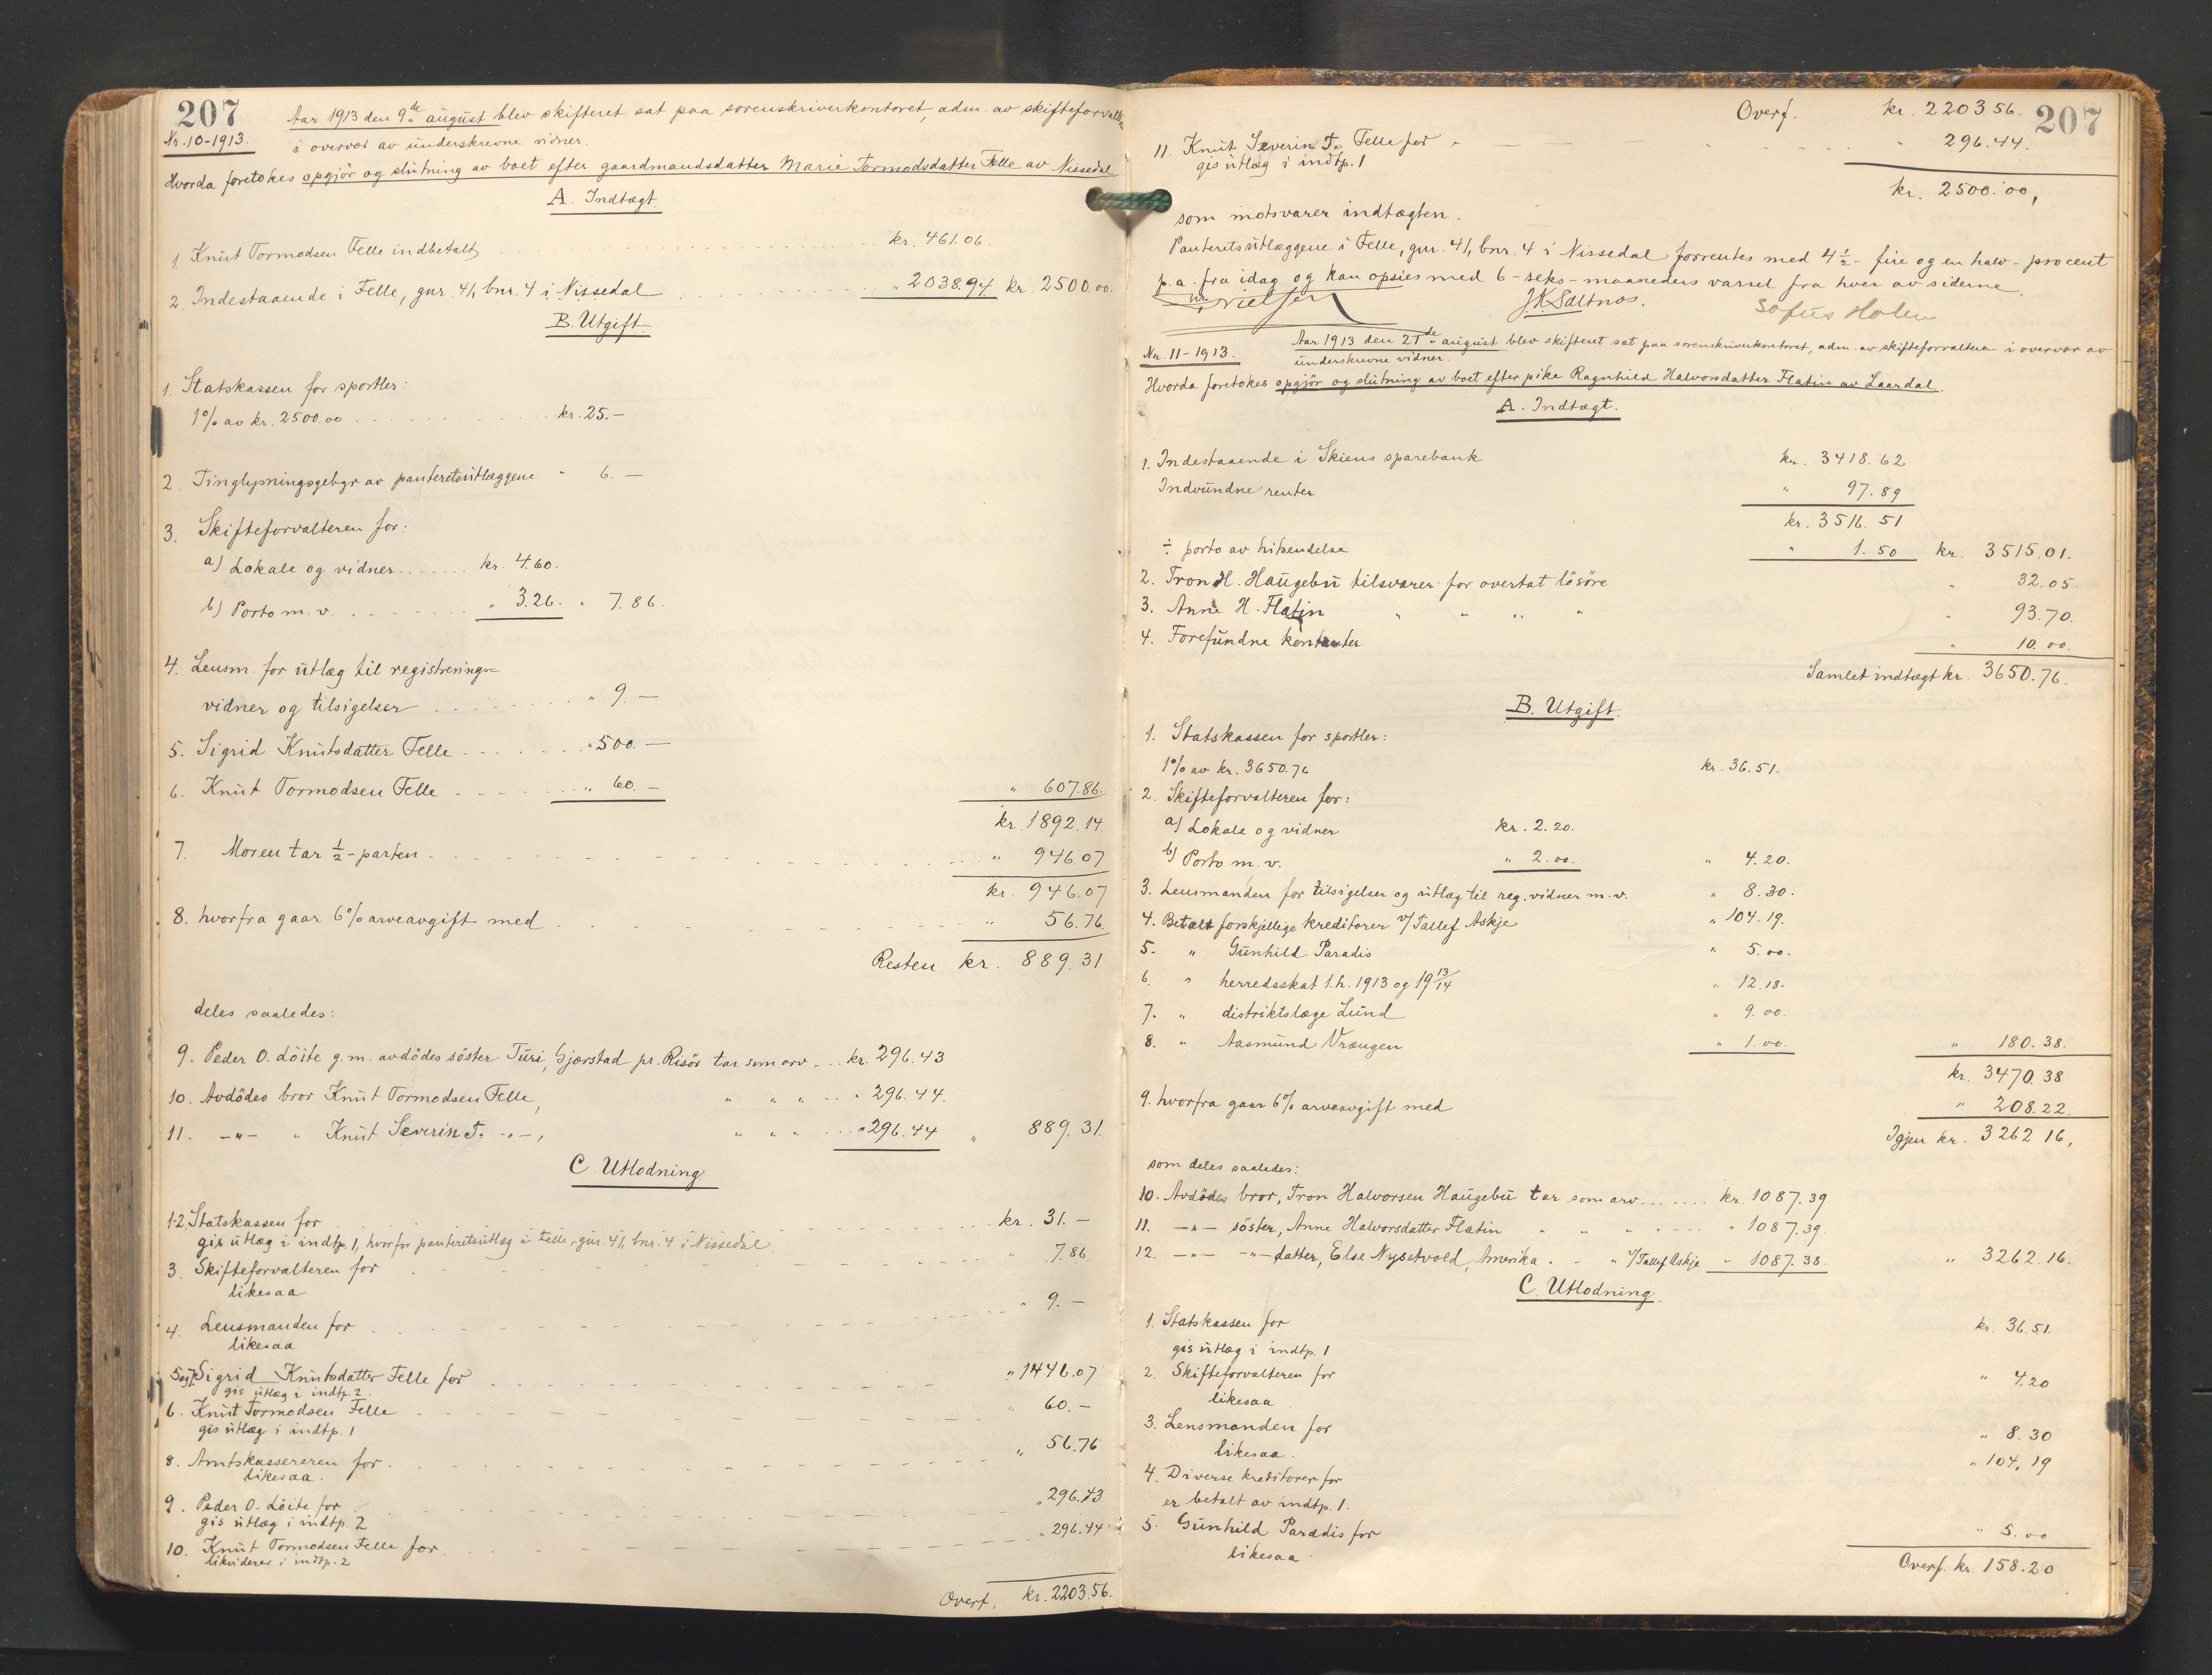 207
Nr. 10-1913.
Aar 1913 den 9de august blev skifteret sat paa sorenskriverkontoret, adm. av skifteforvalt.
i overvær av underskrevne vidner.
Hvorda foretokes opgjör og slutning av boet efter gaardmandsdatter Marie Tormodsdatter Felle av Nissedal
A. Indtægt.
1. Knut Tormodsen Felle indbetalt kr. 461.06.
2. Indestaaende i Felle, gnr. 41, bnr. 4 i Nissedal " 2038.94 kr. 2500.00.
B. Utgift.
1. Statskassen for sportler:
1% av kr. 2500.00 kr. 25.—
2. Tinglysningsgebyr av panteretsutlæggene " 6.—
3. Skifteforvalteren for:
a) Lokale og vidner kr. 4.60.
b) Porto m. v. " 3.26. " 7.86.
4. Lensm. for utlæg til registrerings=
vidner og tilsigelser " 9.—
5. Sigrid Knutsdatter Felle " 500.—
6. Knut Tormodsen Felle " 60.— " 607.86.
kr. 1892.14.
7. Moren tar ½-parten " 946.07
kr. 946.07
8. hvorfra gaar 6% arveavgift med " 56.76.
Resten kr. 889.31
deles saaledes:
9. Peder O. Löite g. m. avdödes söster Turi, Gjærstad pr. Risör tar som arv kr. 296.43
10. Avdödes bror Knut Tormodsen Felle, " " " " 296.44.
11. —"— " Knut Severin T. —"—, " " " " 296.44 " 889.31.
C. Utlodning
1-2. Statskassen for kr. 31.—
gis utlæg i indtp. 1, hvorfor panteretsutlæg i Felle, gnr. 41, bnr. 4 i Nissedal
3. Skifteforvalteren for " 7.86
likesaa
4. Lensmanden for " 9.—
likesaa
5 og 7. Sigrid Knutsdatter Felle for " 1446.07
gis utlæg i indtp. 2.
6. Knut Tormodsen Felle " 60.—
gis utlæg i indtp. 1
8. Amtskassereren for " 56.76
likesaa.
9. Peder O. Löite for " 296.43
gis utlæg i indtp. 2
10. Knut Tormodsen Felle for " 296.44
likviderer i indtp. 2
Overf. kr. 2203.56.
207
Overf. kr. 2203.56.
11. Knut Severin T. Felle for " 296.44.
gis utlæg i indtp. 1
kr. 2500.00,
som motsvarer indtægten.
Panteretsutlæggene i Felle, gnr. 41, bnr. 4 i Nissedal forrentes med 4½ - fire og en halv - procent
p. a. fra idag og kan opsies med 6 - seks - maaneders varsel fra hver av siderne.
Nielsen J. K. Saltnes. Sofus Holen
Nr. 11-1913.
Aar 1913 den 21de august blev skifteret sat paa sorenskriverkontoret, adm. av skifteforvalteren i overvær av
underskrevne vidner.
Hvorda foretokes opgjör og slutning av boet efter pike Ragnhild Halvorsdatter Flatin av Laardal.
A. Indtægt.
1. Indestaaende i Skiens sparebank kr. 3418.62
Indvundne renter " 97.89
kr. 3516.51
÷ porto av hitsendelse " 1.50 kr. 3515.01.
2. Tron H. Haugebu tilsvarer for overtat lösöre " 32.05.
3. Anne H. Flatin " " " " " 93.70.
4. Forefundne kontanter " 10.00.
Samlet indtægt kr. 3650.76.
B. Utgift.
1. Statskassen for sportler:
1% av kr. 3650.76 kr. 36.51.
2. Skifteforvalteren for:
a) Lokale og vidner kr. 2.20.
b) Porto m. v. " 2.00. " 4.20.
3. Lensmanden for tilsigelser og utlæg til reg. vidner m. v. " 8.30.
4. Betalt forskjellige kreditorer v/ Tallef Askje " 104.19.
5. " Gunhild Paradis " 5.00.
6. " herredsskat 1. h. 1913 og 19 13/14 " 12.18.
7. " distriktslæge Lund " 9.00.
8. " Aasmund Vrangen " 1.00. " 180.38.
kr. 3470.38
9. hvorfra gaar 6% arveavgift med " 208.22.
Igjen kr. 3262.16,
som deles saaledes:
10. Avdödes bror, Tron Halvorsen Haugebu tar som arv kr. 1087.39
11. —"— söster, Anne Halvorsdatter Flatin " " " " 1087.39.
12. —"— —"— datter, Else Nysetvold, Amerika " " " v/ Tallef Askje " 1087.38. " 3262.16.
C. Utlodning.
1. Statskassen for kr. 36.51.
gis utlæg i indtp. 1
2. Skifteforvalteren for " 4.20
likesaa
3. Lensmanden for " 8.30
likesaa.
4. Diverse kreditorer for " 104.19
er betalt av indtp. 1.
5. Gunhild Paradis for " 5.00
likesaa
Overf. kr. 158.20